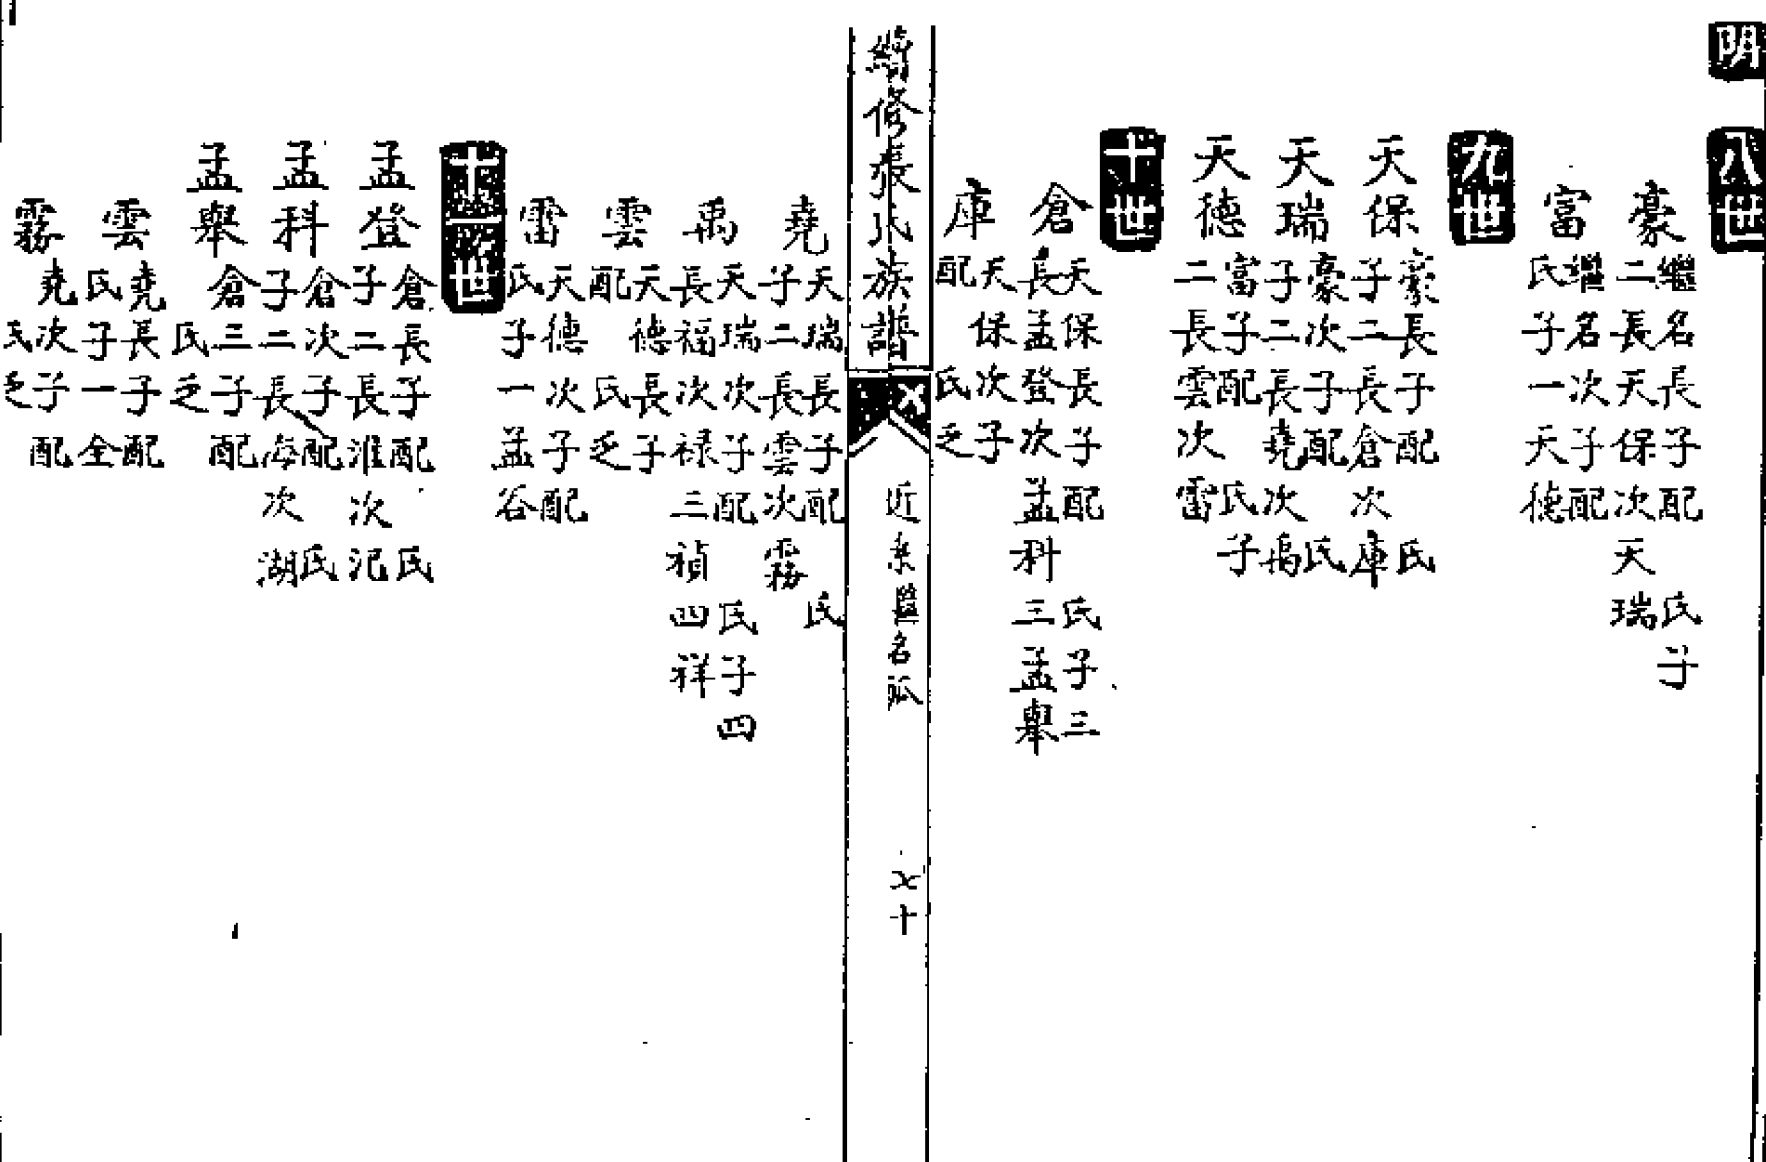 明
八世
豪
繼名長子配 氏子
二長天保次天瑞
富
繼名次子配
氏子一天德
九世
天保
豪長子配 氏
子二長倉次庫
天瑞
豪次子配 氏
子二長堯次禹
天德
富子配 氏子
二長雲次雷
十世
倉
天保長子配 氏子三
長孟登次孟科三孟舉
庫
天保次子
配 氏乏
續修張氏族譜
近 名派
七十
堯
天瑞長子配 氏
子二長雲次霧
禹
天瑞次子配 氏子四
長福次祿三禎四祥
雲
天德長子
配 氏乏
雷
天德次子配
氏子一孟谷
十一世
孟登
倉長子配 氏
子二長淮次汜
孟科
倉次子配 氏
子二長海次湖
孟舉
倉三子配
氏乏
雲
堯長子配
氏子一全
霧
堯次子配
氏乏